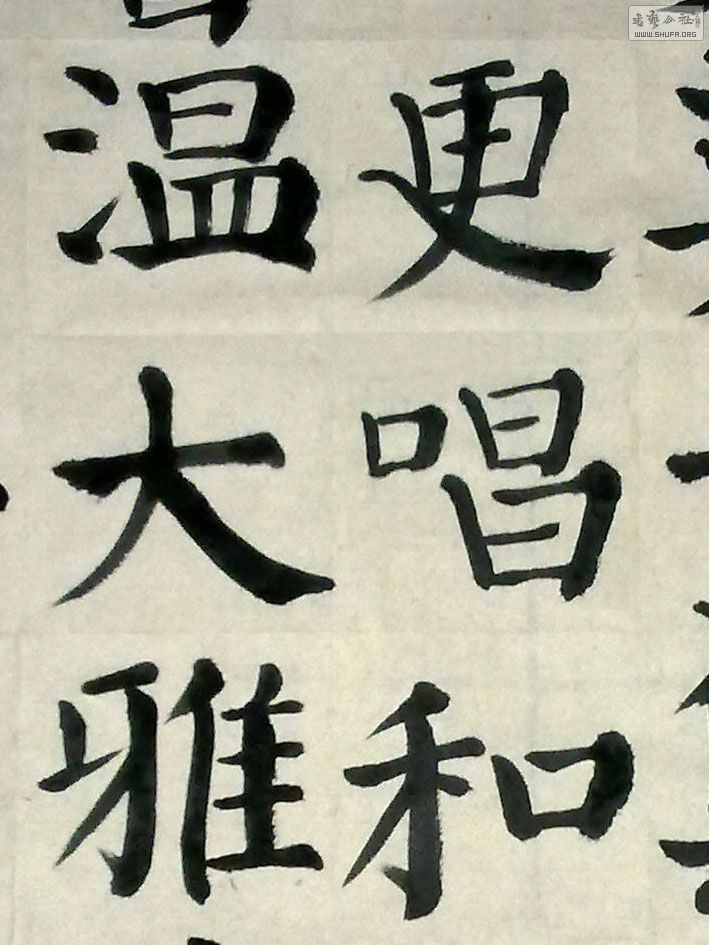 更唱和
温大雅
书艺公社
WWW.SHUFA.ORG